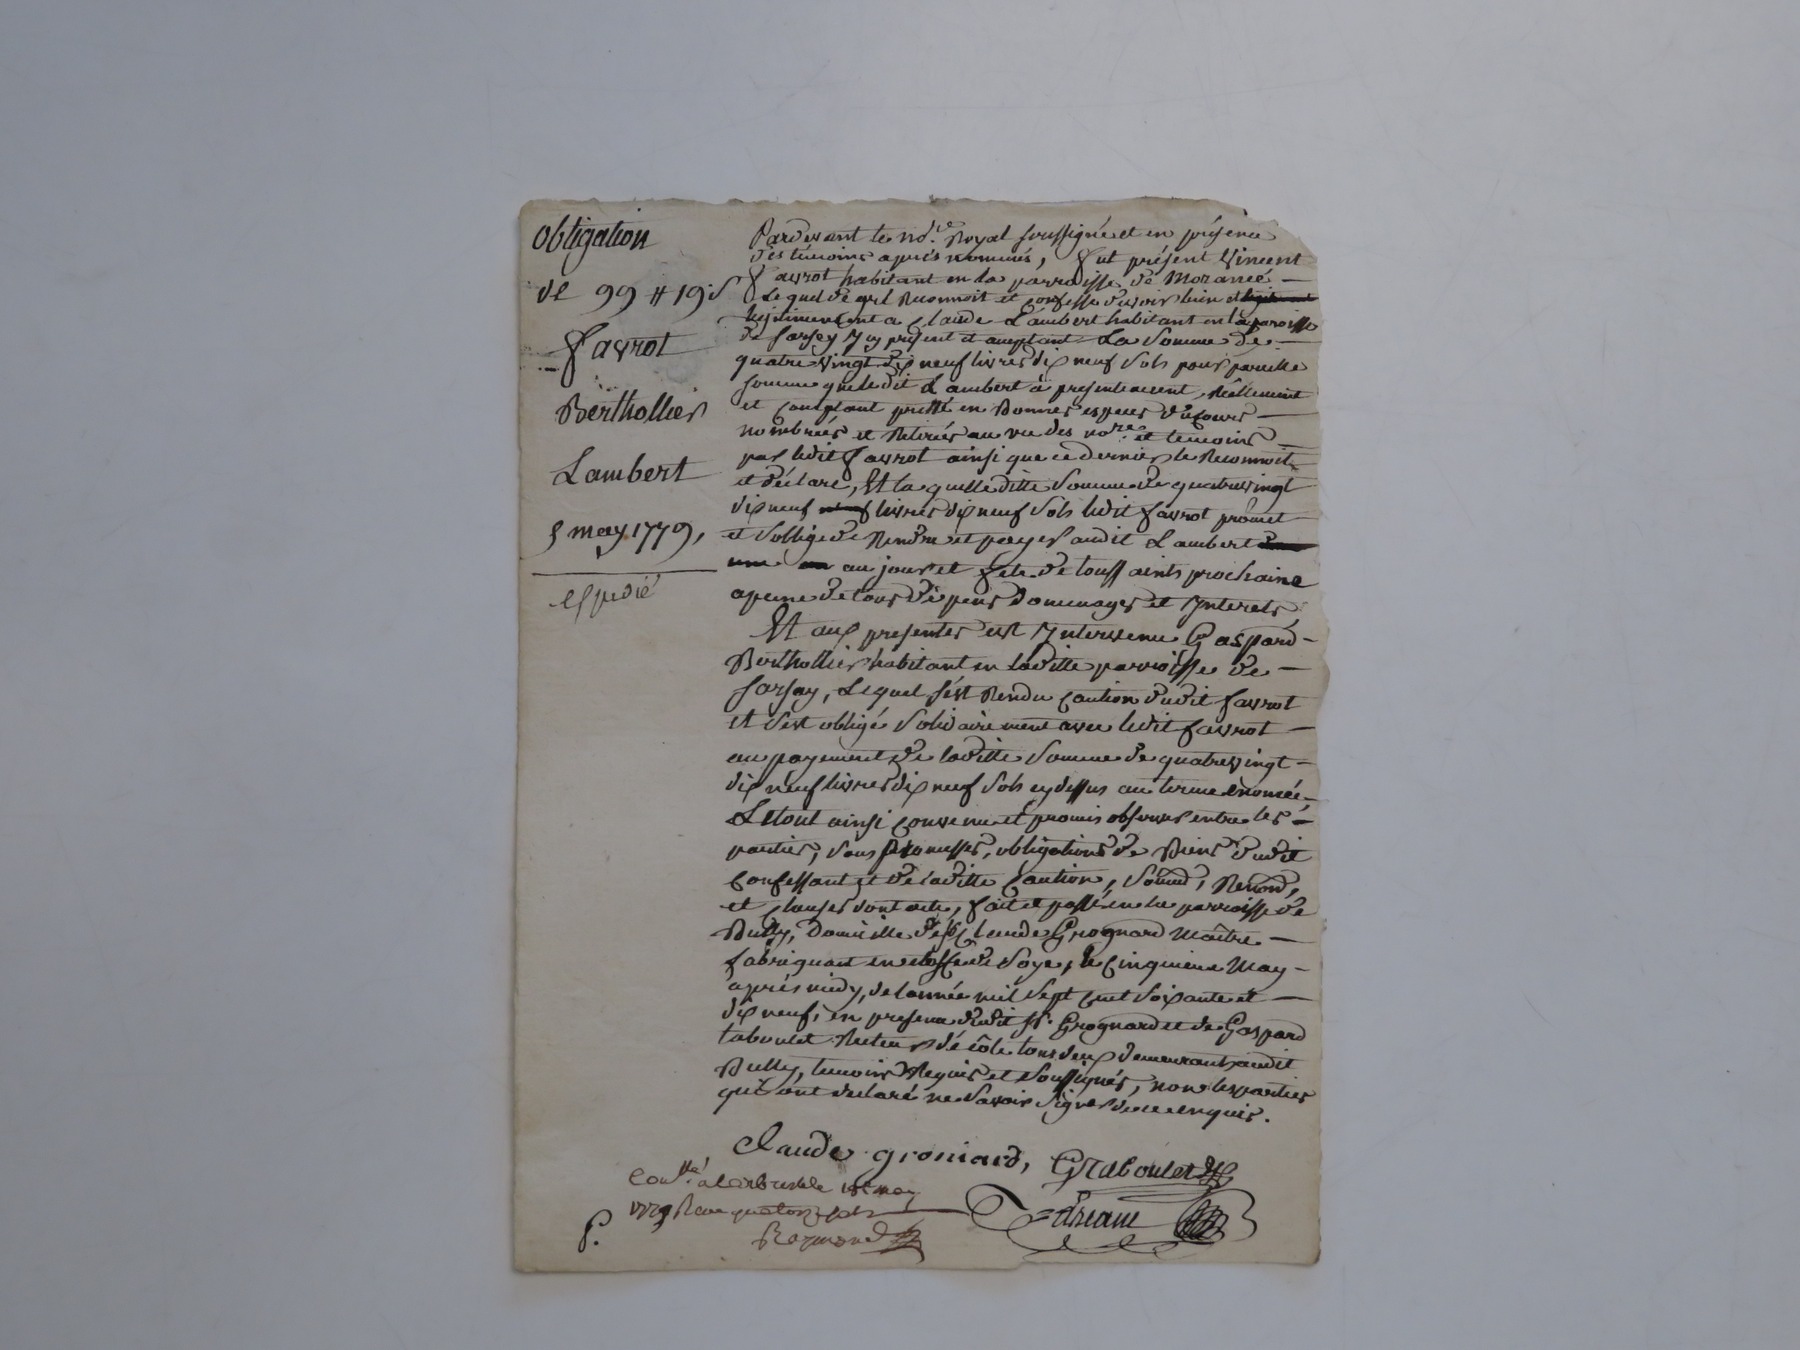 obligation
de 99 ₶ 19 s
favrot
Berthollier
Lambert
5 may 1779,
expedié
Pardevant le no.re Royal soussigné et en présence
des témoins aprés nommés, fut présent Vincent
favrot habitant en la parroisse de Morancé
Lequel de gré Reconnoit et confesse devoir bien et
legitimement a Claude Lambert habitant en la paroisse
de Sarsey Icy présent et acceptant La Somme de
quatre vingt dix neuf livres dix neuf Sols pour pareille
somme que ledit Lambert à presentement, Réellement
et comptant pretté en Bonnes especes du Cours
nombrées et Retirés au vu des no.re et temoins
par ledit favrot ainsi que ce dernier le Reconnoit
et déclare, Et la quelle ditte Somme de quatre vingt
dix neuf livres dix neuf Sols ledit favrot promet
et s'oblige de Rendre et payer audit Lambert
au jour et fete de toussaints prochaine
apeine de tous dépens Dommages et Interets,
Et aux presentes est Intervenu Gaspard
Berthollier habitant en laditte parroisse de
Sarsay, Lequel s'est Rendu Caution dudit favrot
et s'est obligé Solidairement avec ledit favrot
au payement de laditte Somme de quatre vingt
dix neuf livres dix neuf Sols cy dessus au terme enoncé,
Le tout ainsi convenu et promis observer entre les
parties, sous promesses, obligations de Biens dudit
Confessant et de laditte Caution, Soumd, Renond,
et clauses dont acte, fait et passé en la parroisse de
Bully, Domicille de Sr Claude Grognard Maître
fabriquant en étoffe de Soye, le cinquieme May
aprés midy, de l'année mil Sept Cent Soixante et
dix neuf, en presence dudit Sr. Grognard et de Gaspard
taboulet Recteur d'écôle tous deux demeurant audit
Bully, temoins Requis et Soussignés, non les parties
qui ont declaré ne Savoir Signer de ce enquis.
Claude groniard, G Taboulet
Dreane
Con.llé à Larbresle le may
1779 Reçu quatorze sols
Raymond
P.